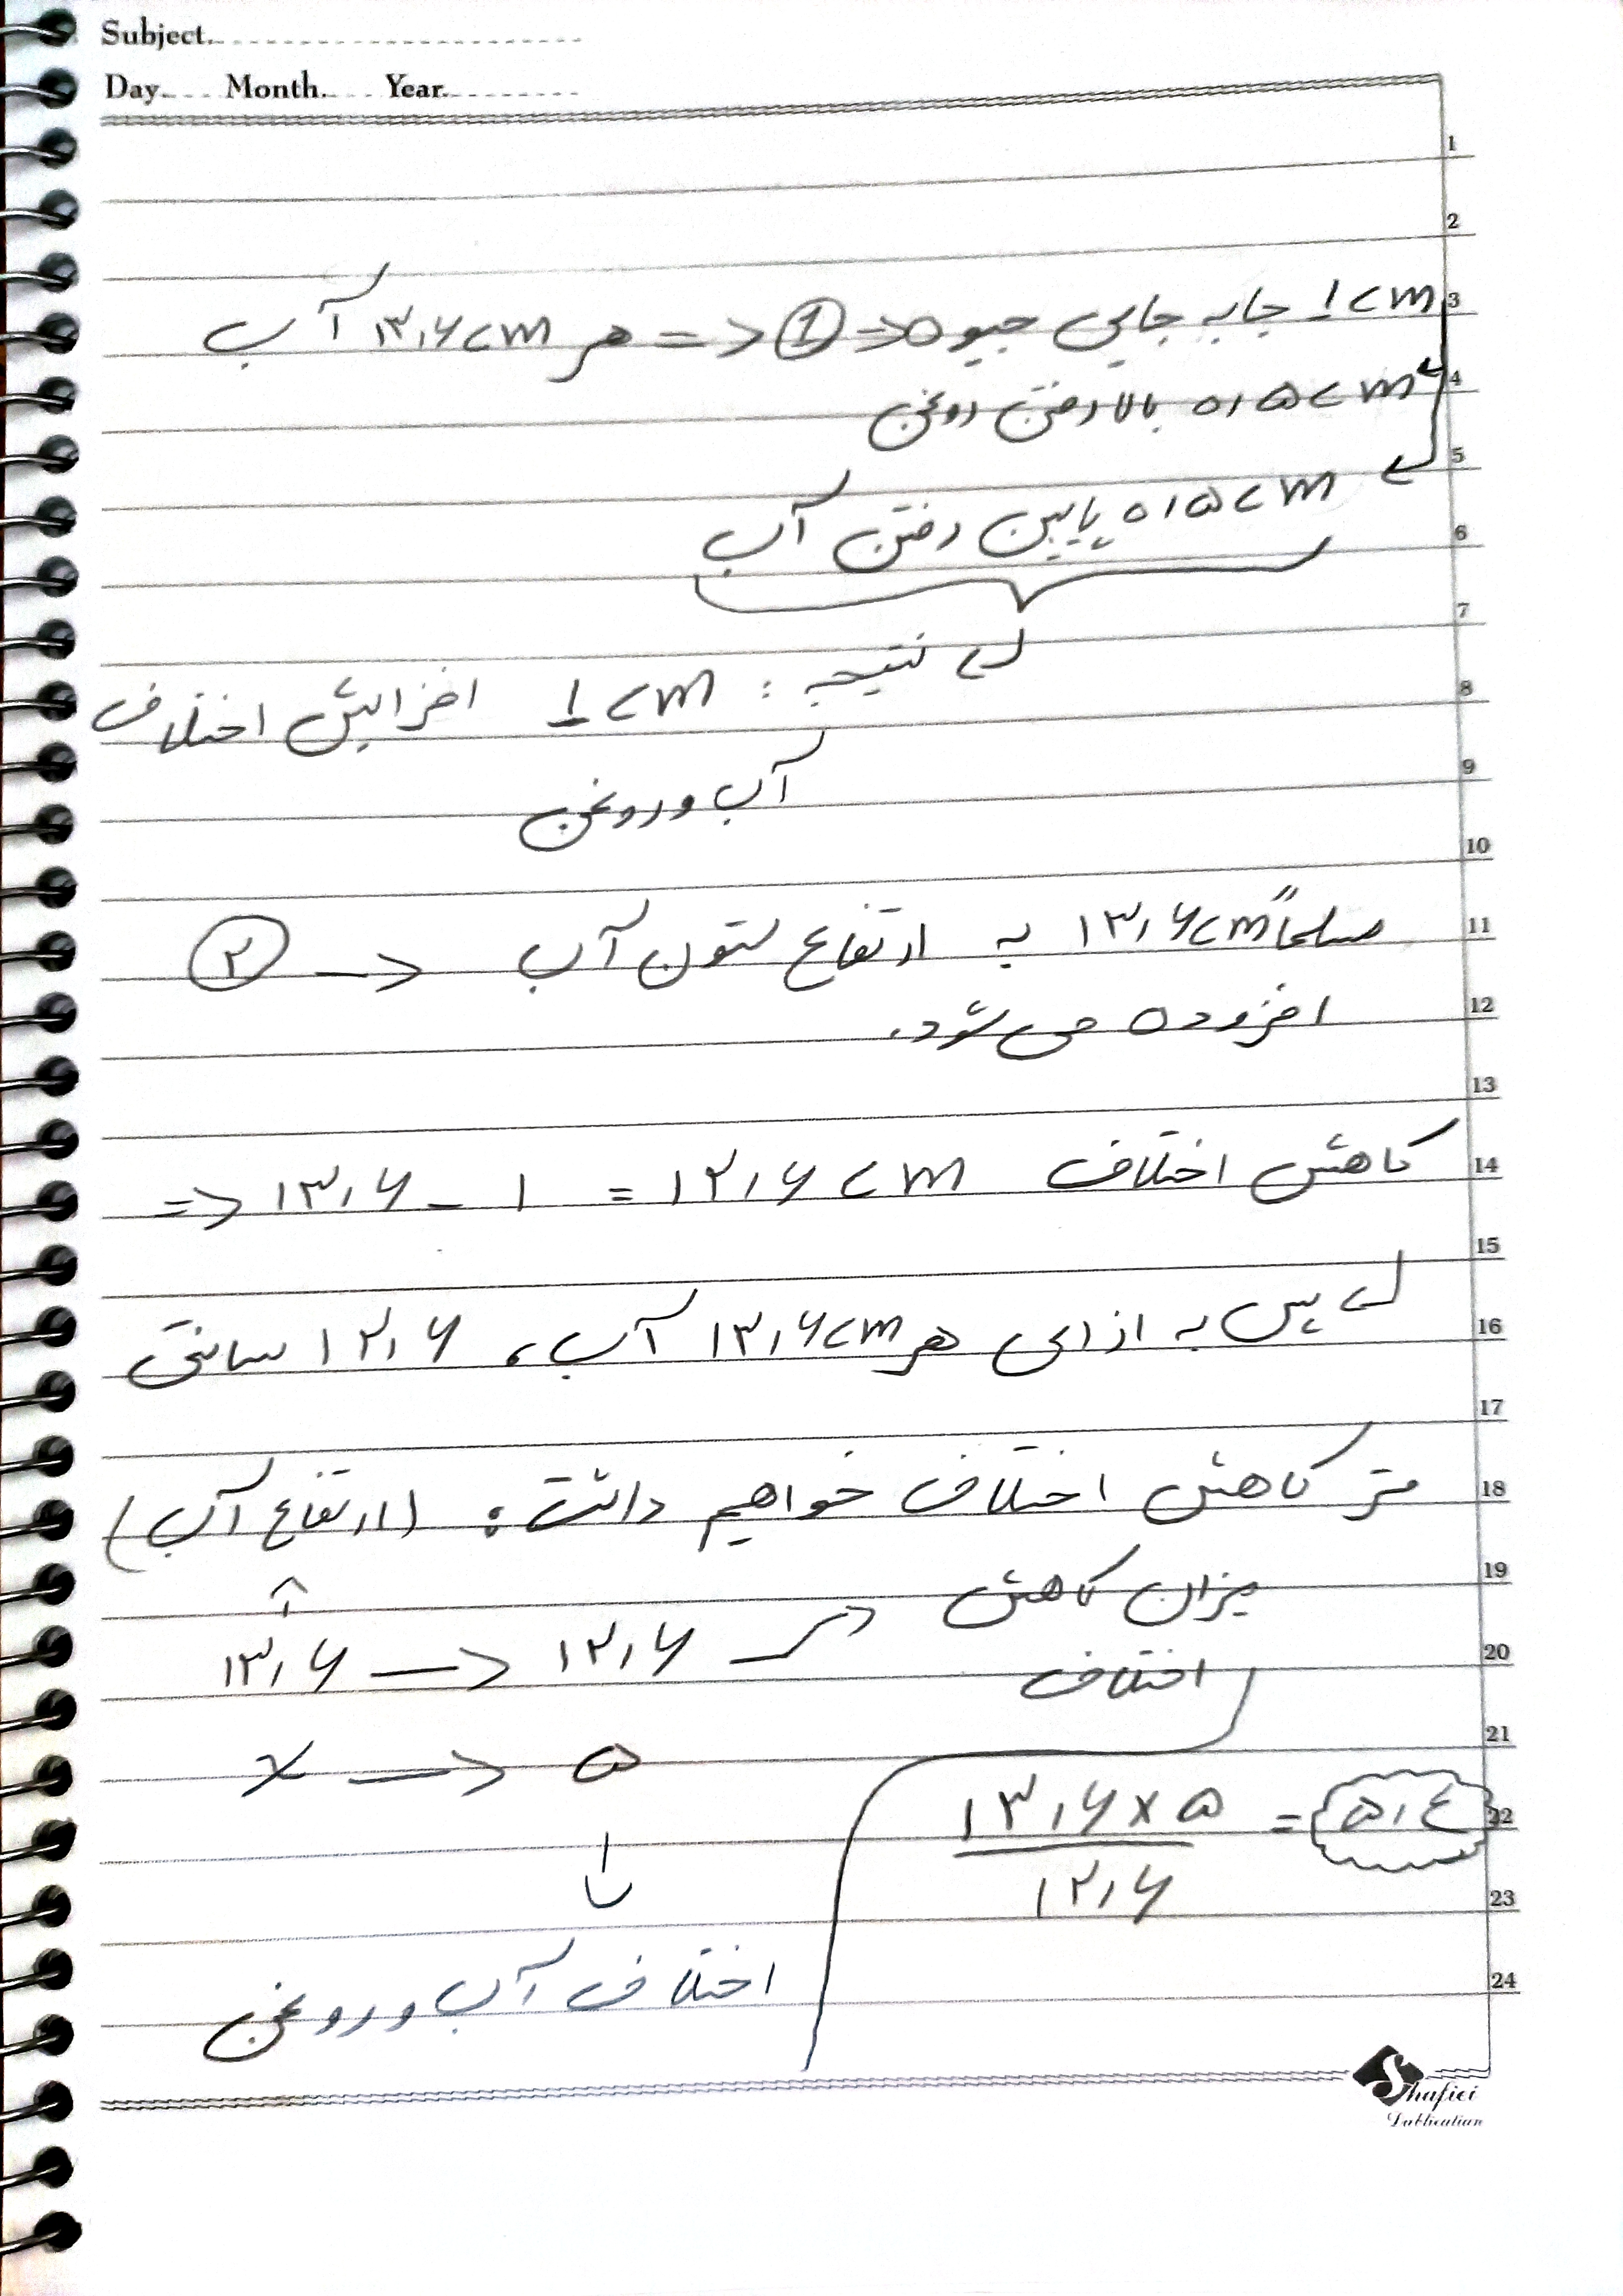 Subject.
Day. Month. Year.
هر ۱۳٫۶ cm آب => ① => ۱ cm جابه جایی جیوه
۰٫۵ cm بالا رفتن روغن
۰٫۵ cm پایین رفتن آب
نتیجه : ۱ cm افزایش اختلاف
آب و روغن
② -> مسلماً ۱۳٫۶ cm به ارتفاع ستون آب
افزوده می شود.
=> ۱۳٫۶ - ۱ = ۱۲٫۶ cm کاهش اختلاف
پس به ازای هر ۱۳٫۶ cm آب، ۱۲٫۶ سانتی
متر کاهش اختلاف خواهیم داشت: (ارتفاع آب)
میزان کاهش
اختلاف
۱۳٫۶ -> ۱۲٫۶
x -> ۵
۱۳٫۶ × ۵ / ۱۲٫۶ = ۵٫۴
اختلاف آب و روغن
1
2
3
4
5
6
7
8
9
10
11
12
13
14
15
16
17
18
19
20
21
22
23
24
Shafiei
Publication